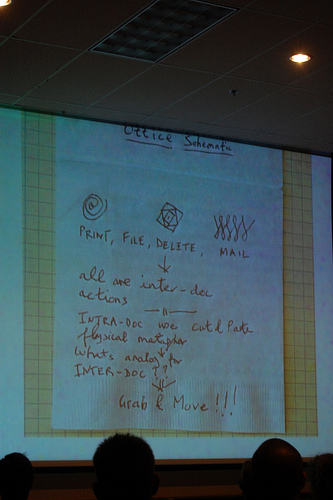 Office Schematic
PRINT, FILE, DELETE, MAIL
all are inter-doc
actions
INTRA-DOC we cut & Paste
physical metaphor
Whats analog for
INTER-DOC ??
Grab & Move !!!